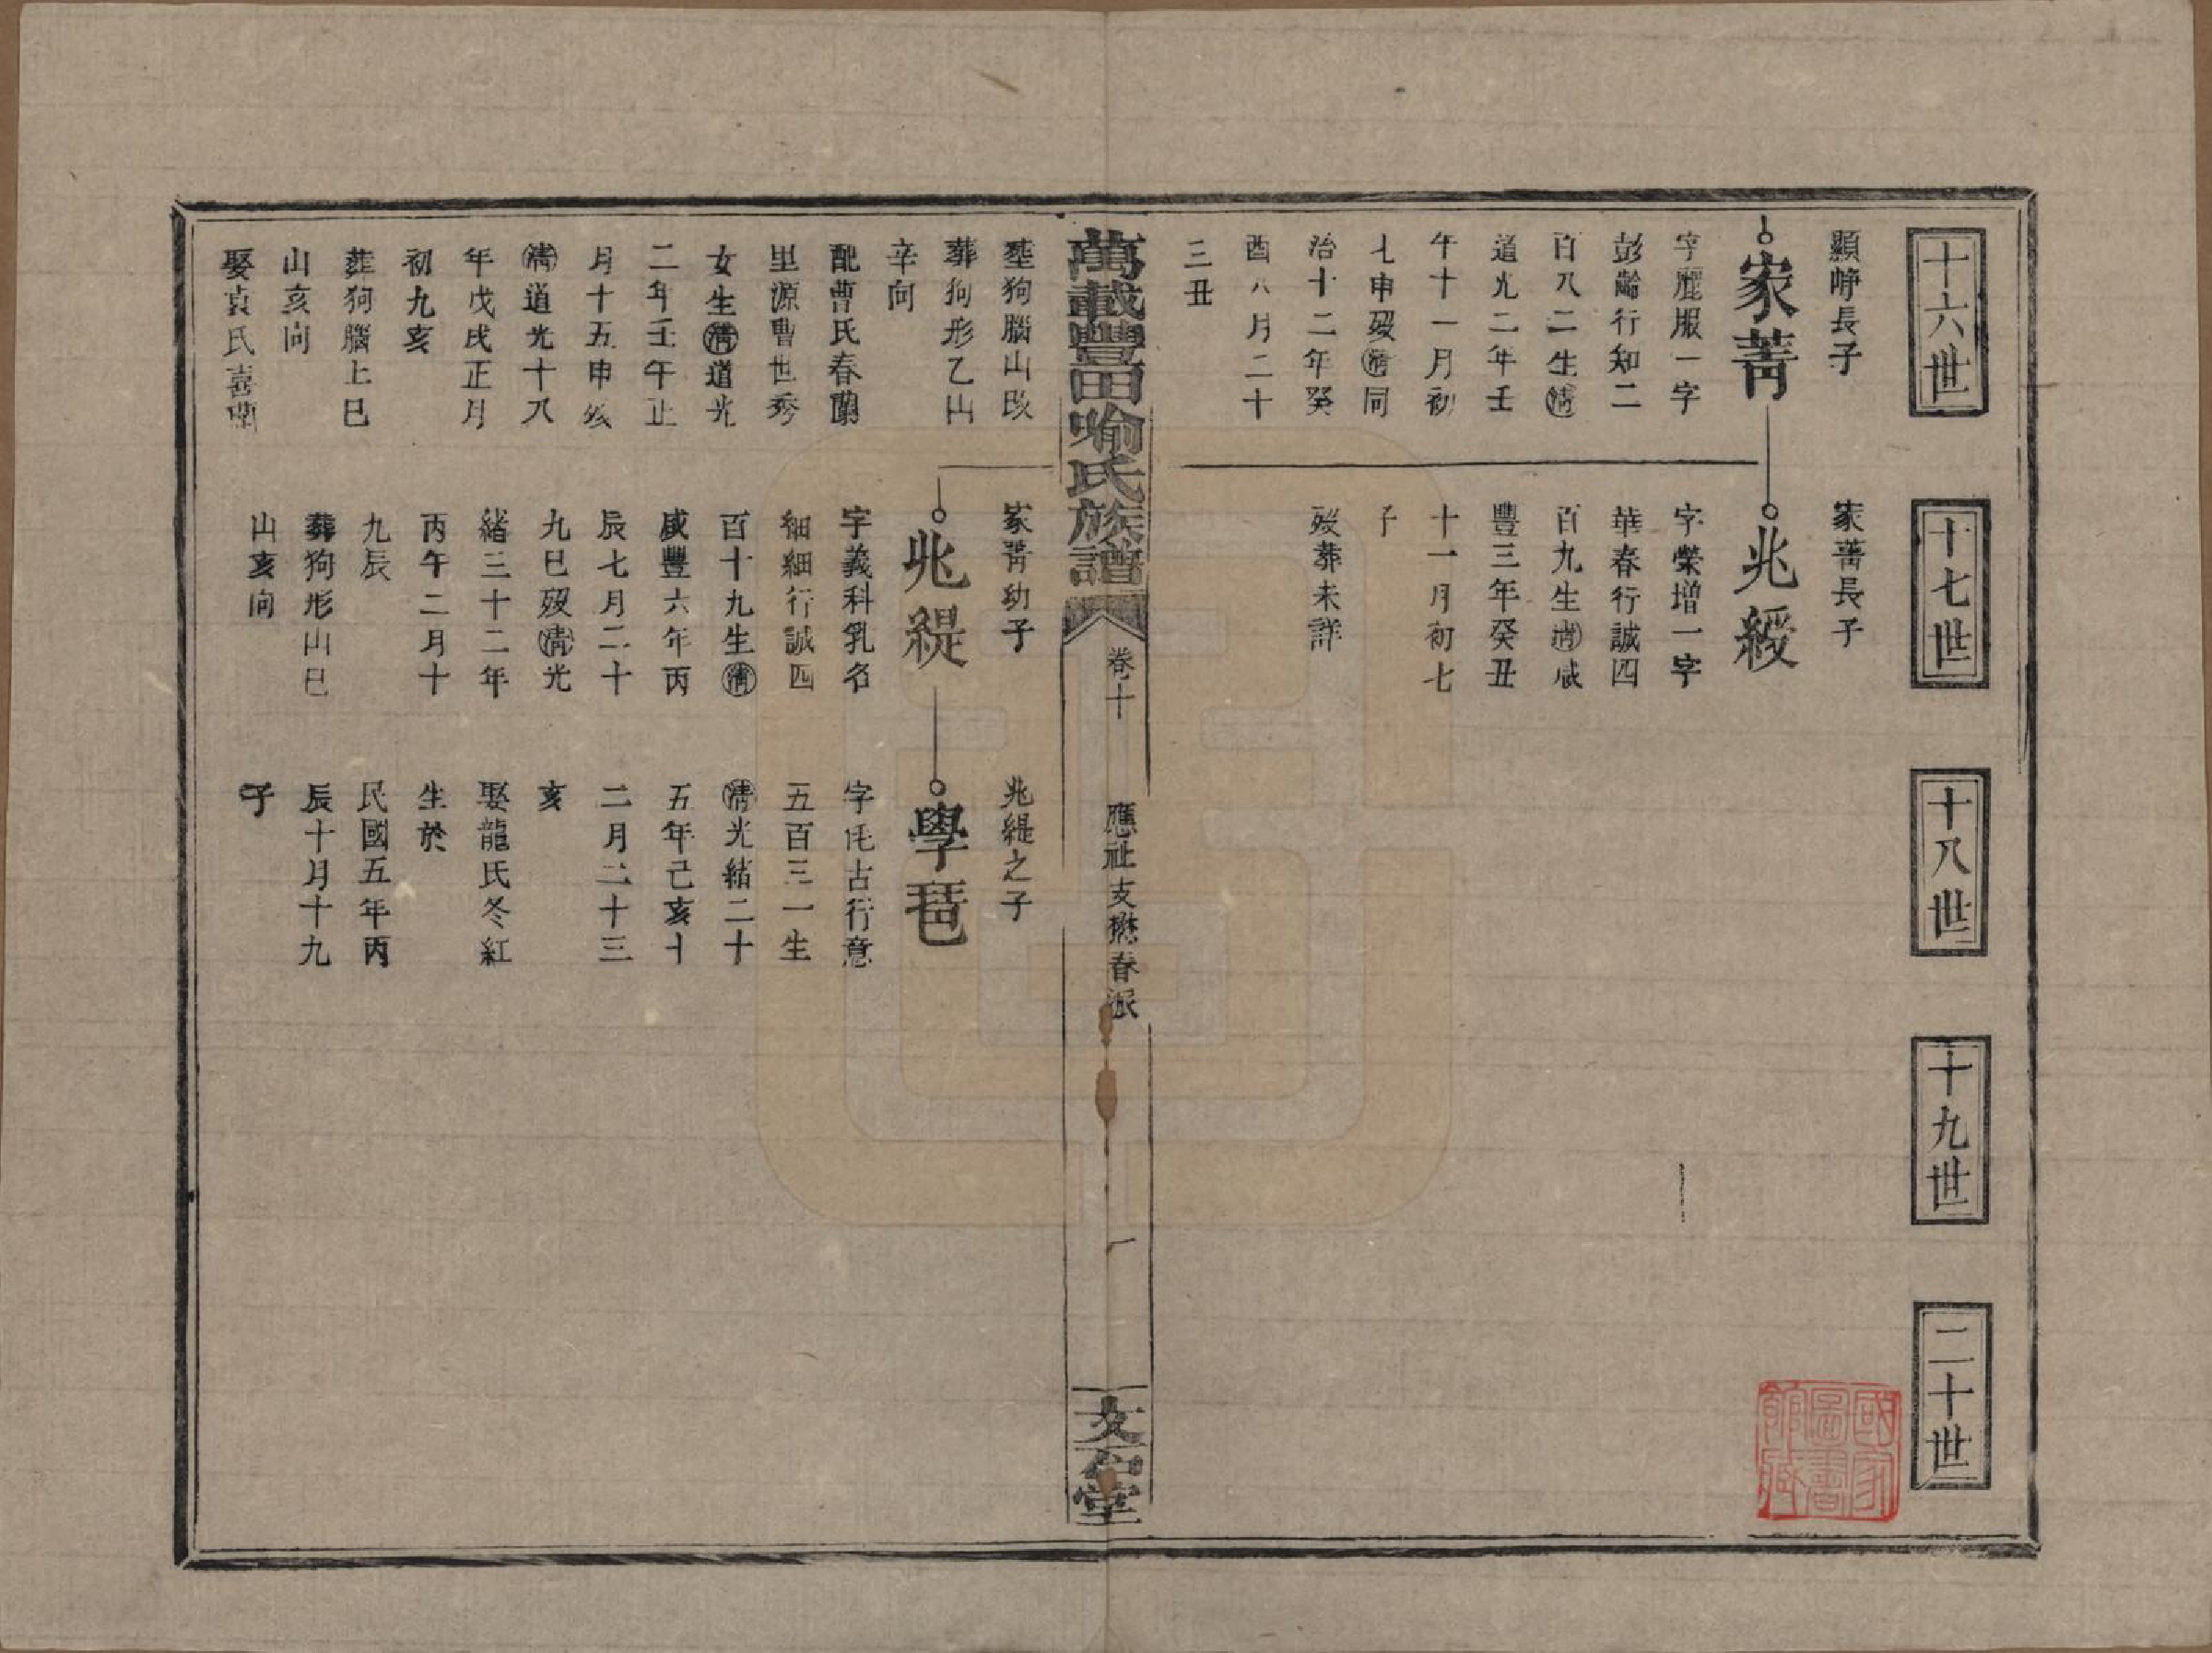 十六世
十七世
十八世
十九世
二十世
顯崢長子
家菁
字麗服一字
彭齡行知二
百八二生清
道光二年壬
午十一月初
七申歿清同
治十二年癸
酉八月二十
三丑
家菁長子
兆綬
字榮增一字
華春行誠四
百九生清咸
豐三年癸丑
十一月初七
子
歿葬未詳
萬載豐田喻氏族譜
卷十
應祉支懋春派
文石堂
塟狗腦山改
葬狗形乙山
辛向
配曹氏春蘭
里源曹世秀
女生清道光
二年壬午正
月十五申歿
清道光十八
年戊戌正月
初九亥
葬狗腦上巳
山亥向
娶袁氏喜蘭
家菁幼子
兆緹
字義科乳名
細細行誠四
百十九生清
咸豐六年丙
辰七月二十
九巳歿清光
緒三十二年
丙午二月十
九辰
葬狗形山巳
山亥向
兆緹之子
學琶
字毛古行意
五百三一生
清光緒二十
五年己亥十
二月二十三
亥
娶龍氏冬紅
生於
民國五年丙
辰十月十九
子
國家圖書館藏